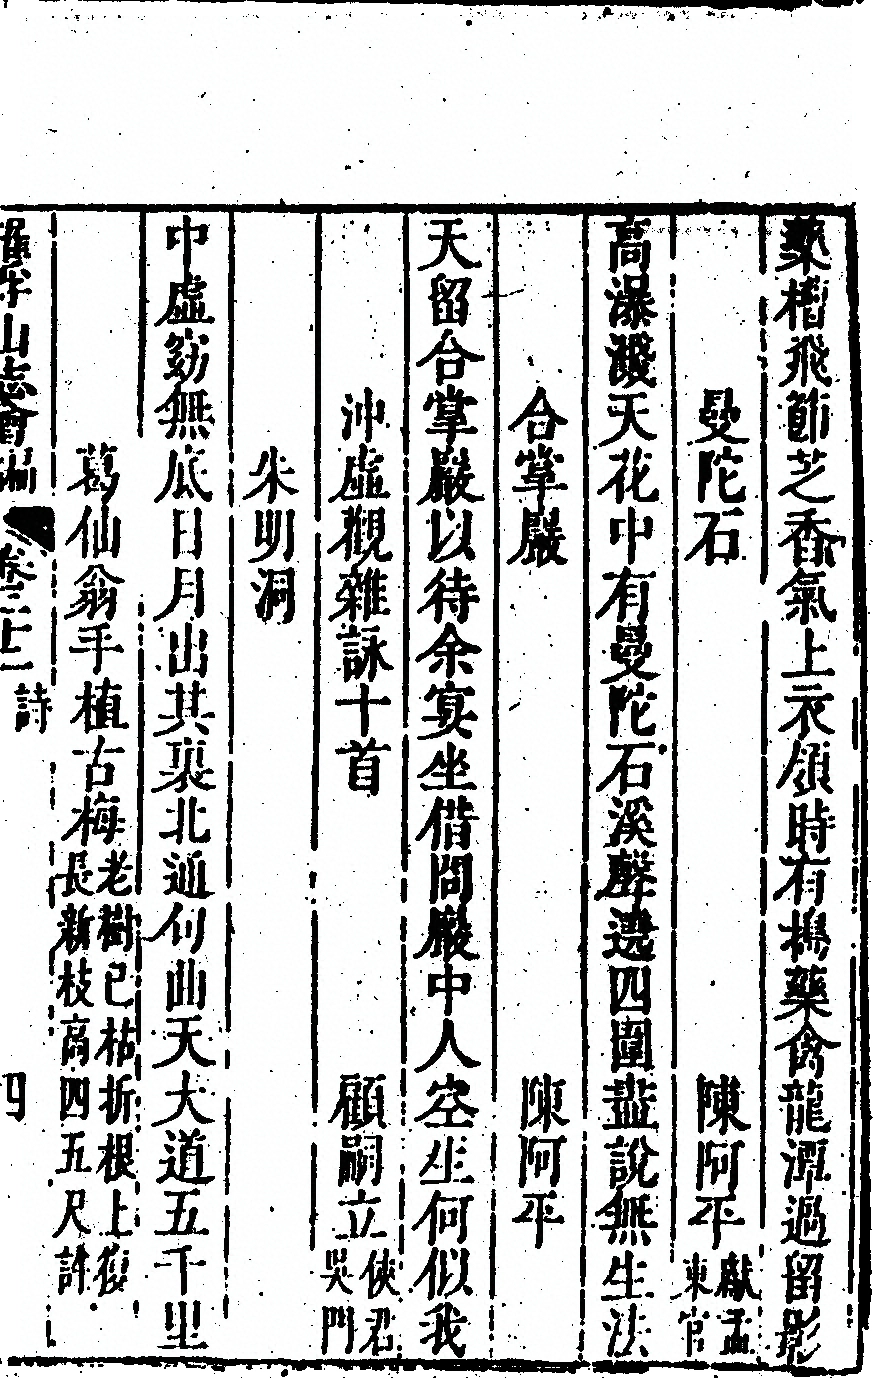 藥槽飛節芝香氣上衣領時有搗藥禽龍潭過留影
曼陀石　陳阿平獻孟東官
高瀑濺天花中有曼陀石溪聲遶四圍盡說無生法
合掌巖　陳阿平
天留合掌巖以待余宴坐借問巖中人空生何似我
沖虛觀雜詠十首　顧嗣立俠君吳門
朱明洞
中虛窈無底日月出其裏北通句曲天大道五千里
葛仙翁手植古梅老樹已枯折根上復長新枝高四五尺許
羅浮山志會編　卷二十一　詩　四